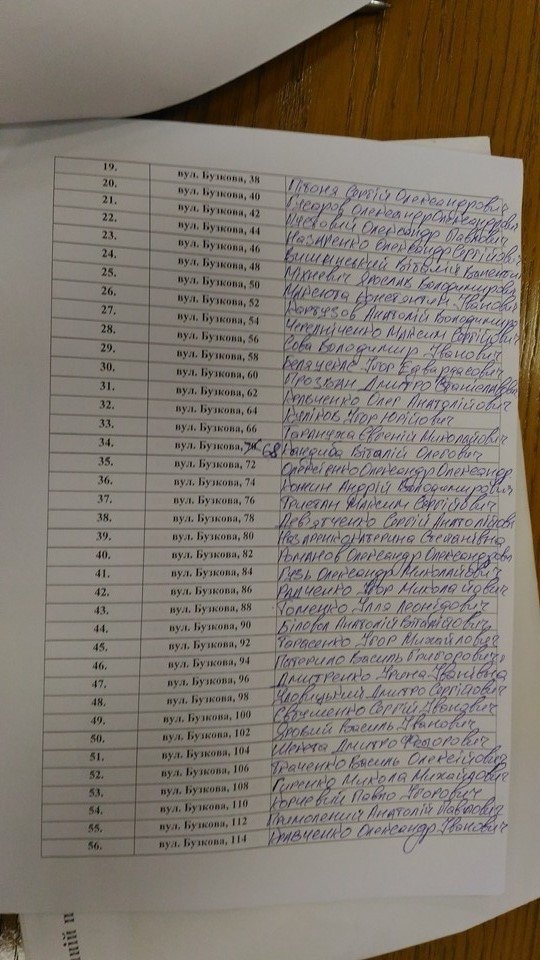 19. вул. Бузкова, 38 Пітоня Сергій Олександрович
20. вул. Бузкова, 40 Гусаров Олександр Олександрови
21. вул. Бузкова, 42 Пустовий Олександр Павлович
22. вул. Бузкова, 44 Назаренко Олександр Сергійович
23. вул. Бузкова, 46 Вишницький Віталій Валентин
24. вул. Бузкова, 48 Міхневич Ярослав Володимирови
25. вул. Бузкова, 50 Максюта Констянтин Іванович
26. вул. Бузкова, 52 Картузов Анатолій Володимир
27. вул. Бузкова, 54 Чередніченко Максим Сергійович
28. вул. Бузкова, 56 Сова Володимир Іванович
29. вул. Бузкова, 58 Ігор Едвардасович
30. вул. Бузкова, 60 Прозьян Дмитро Станіславови
31. вул. Бузкова, 62 Кравченко Олег Анатолійович
32. вул. Бузкова, 64 Куліков Ігор Юрійович
33. вул. Бузкова, 66 Євгеній Миколайович
34. вул. Бузкова, 68 Кандиба Віталій Олегович
35. вул. Бузкова, 72 Олексієнко Олександр Олександр
36. вул. Бузкова, 74 Кожин Андрій Володимирович
37. вул. Бузкова, 76 Тристан Максим Сергійович
38. вул. Бузкова, 78 Дев'ятченко Сергій Анатолійови
39. вул. Бузкова, 80 Назаренко Катерина Євгенівна
40. вул. Бузкова, 82 Романов Олександр Олександрови
41. вул. Бузкова, 84 Гузь Олександр Миколайович
42. вул. Бузкова, 86 Радченко Ігор Миколайович
43. вул. Бузкова, 88 Томенко Ілля Леонідович
44. вул. Бузкова, 90 Біловол Анатолій Віталійович
45. вул. Бузкова, 92 Тарасенко Ігор Михайлович
46. вул. Бузкова, 94 Потерило Василь Григорович
47. вул. Бузкова, 96 Дмитренко Ірина Іванівна
48. вул. Бузкова, 98 Уловицький Дмитро Сергійович
49. вул. Бузкова, 100 Євтушенко Сергій Іванович
50. вул. Бузкова, 102 Яровий Василь Іванович
51. вул. Бузкова, 104 Шекета Дмитро Федорович
52. вул. Бузкова, 106 Ткаченко Василь Олексійович
53. вул. Бузкова, 108 Гиренко Микола Михайлович
54. вул. Бузкова, 110 Корчевий Павло Ігорович
55. вул. Бузкова, 112 Анатолій Павлович
56. вул. Бузкова, 114 Кравченко Олександр Іванович